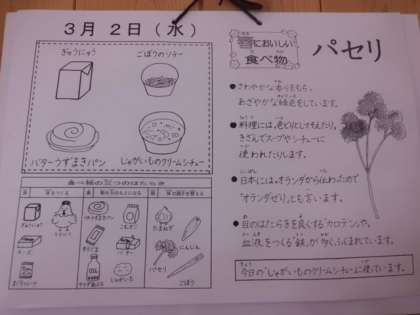 3月 2日 (水)
ぎゅうにゅう
ごぼうのソテー
バターうずまきパン
じゃがいものクリームシチュー
においしい
食べ物
パセリ
●さわやかな香りをもち、
あざやかな緑色をしています。
●料理には、色どりとしてそえたり、
きざんでスープやシチューに
使われたりします。
●日本には、オランダから伝わったので
"オランダゼリ"ともいいます。
●目のはたらきを良くする"カロテン"や、
血液をつくる"鉄"が多くふくまれています。
今日の「じゃがいものクリームシチュー」に使っています。
赤
黄
緑
ぎゅうにゅう
チーズ
とりにく
こむぎこ
バター
じゃがいも
たまねぎ
にんじん
パセリ
ごぼう